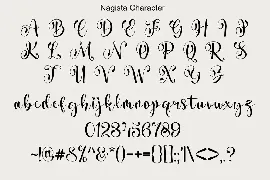 Nagista Character
A B C D E F G H I J
K L M N O P Q R S
T U V W X Y Z
abcdefghijklmnopqrstuvwxyz
0123456789
~!@#$%^&*()-+={}[]:;"|\<>,.?